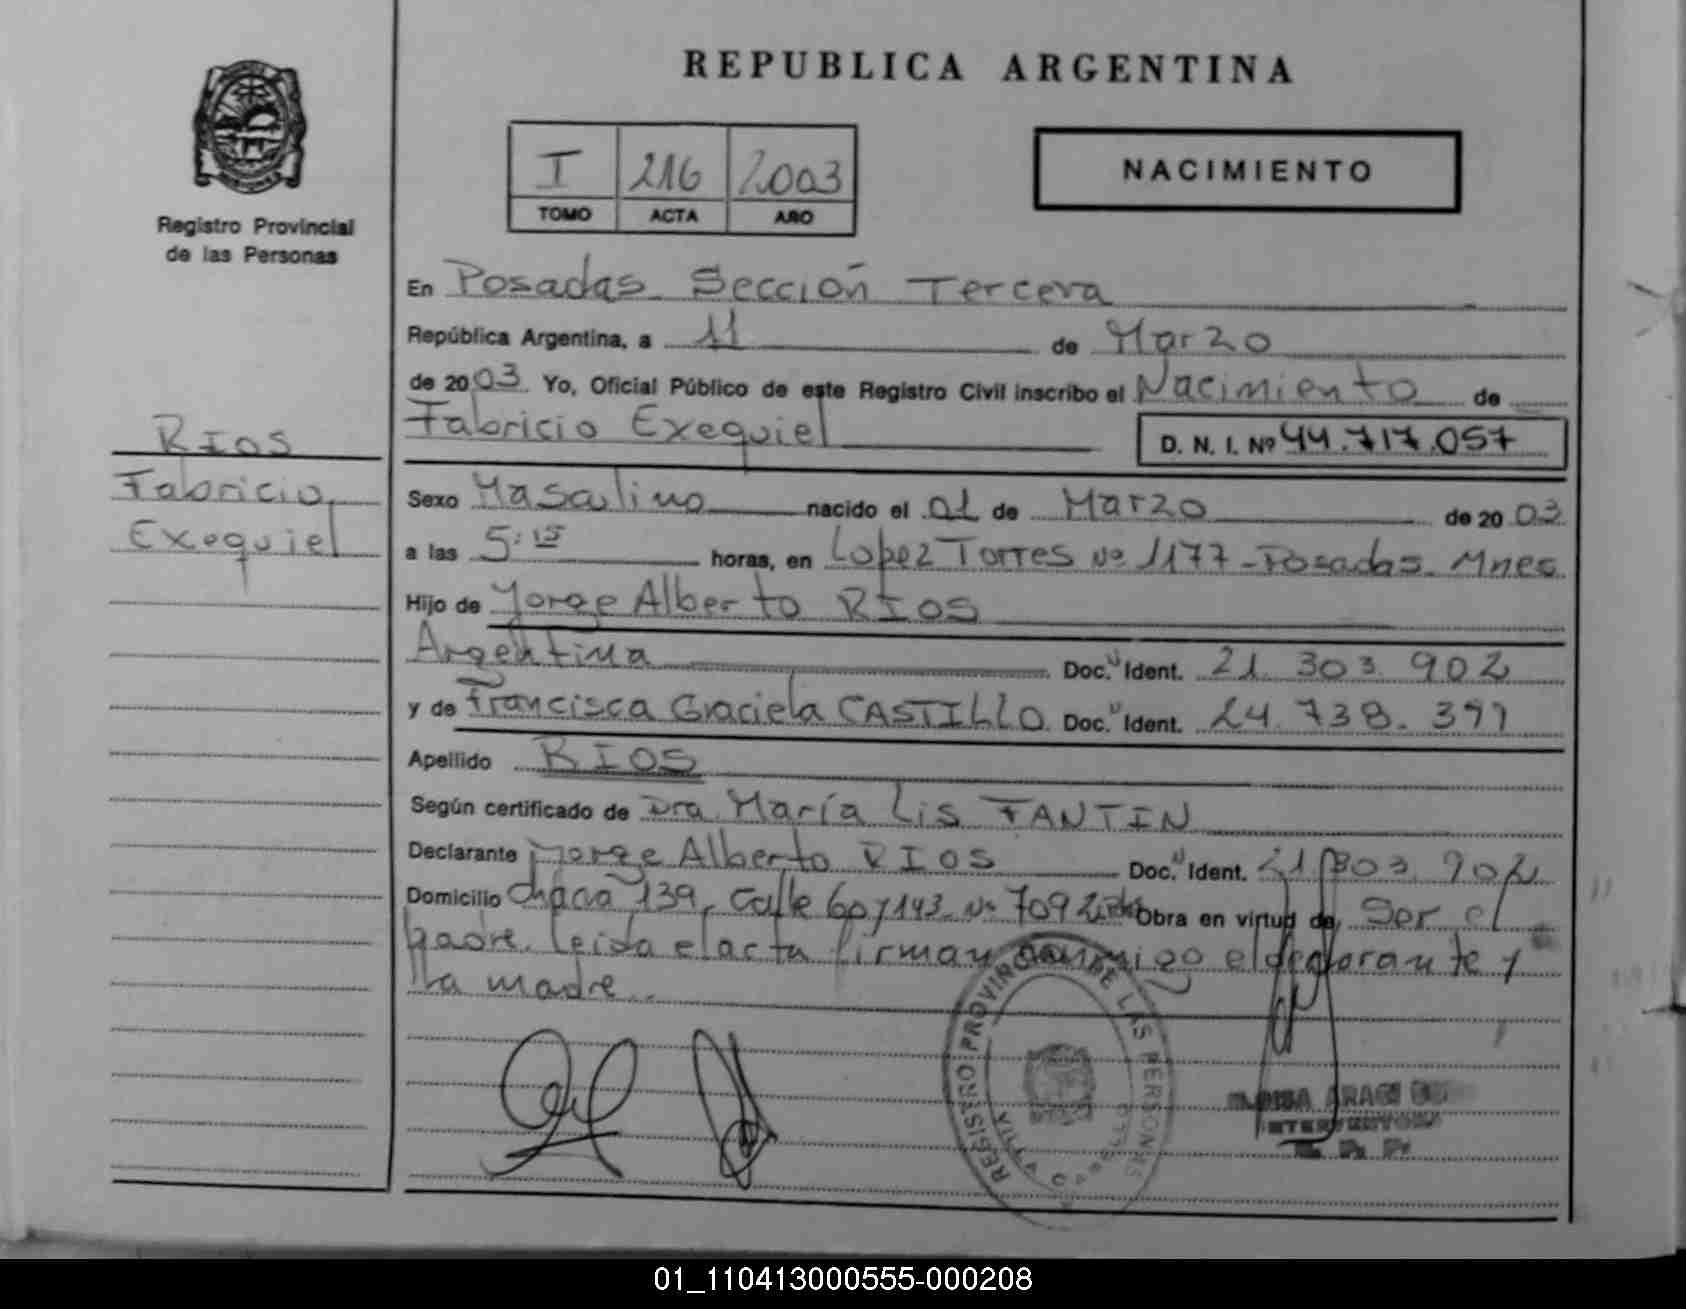 REPUBLICA ARGENTINA
Registro Provincial
de las Personas
I 216 2003
TOMO ACTA AÑO
NACIMIENTO
En Posadas Sección Tercera
República Argentina, a 11 de Marzo
de 2003. Yo, Oficial Público de este Registro Civil inscribo el Nacimiento de
Fabricio Exequiel D. N. I. Nº 44.717.057
RIOS
Fabricio
Exequiel
Sexo Masculino nacido el 01 de Marzo de 2003
a las 5:15 horas, en Lopez Torres Nº 1177 - Posadas - Mnes
Hijo de Jorge Alberto RIOS
Argentina Doc. Ident. 21.303.902
y de Francisca Graciela CASTILLO Doc. Ident. 24.738.391
Apellido RIOS
Según certificado de Dra. María Lis FANTIN
Declarante Jorge Alberto RIOS Doc. Ident. 21.303.902
Domicilio Chacra 139, Calle 60 y 143 Nº 7092 Obra en virtud de Ser el
padre. Leida el acta firman conmigo el declarante y
la madre.
REGISTRO PROVINCIAL DE LAS PERSONAS
01_110413000555-000208